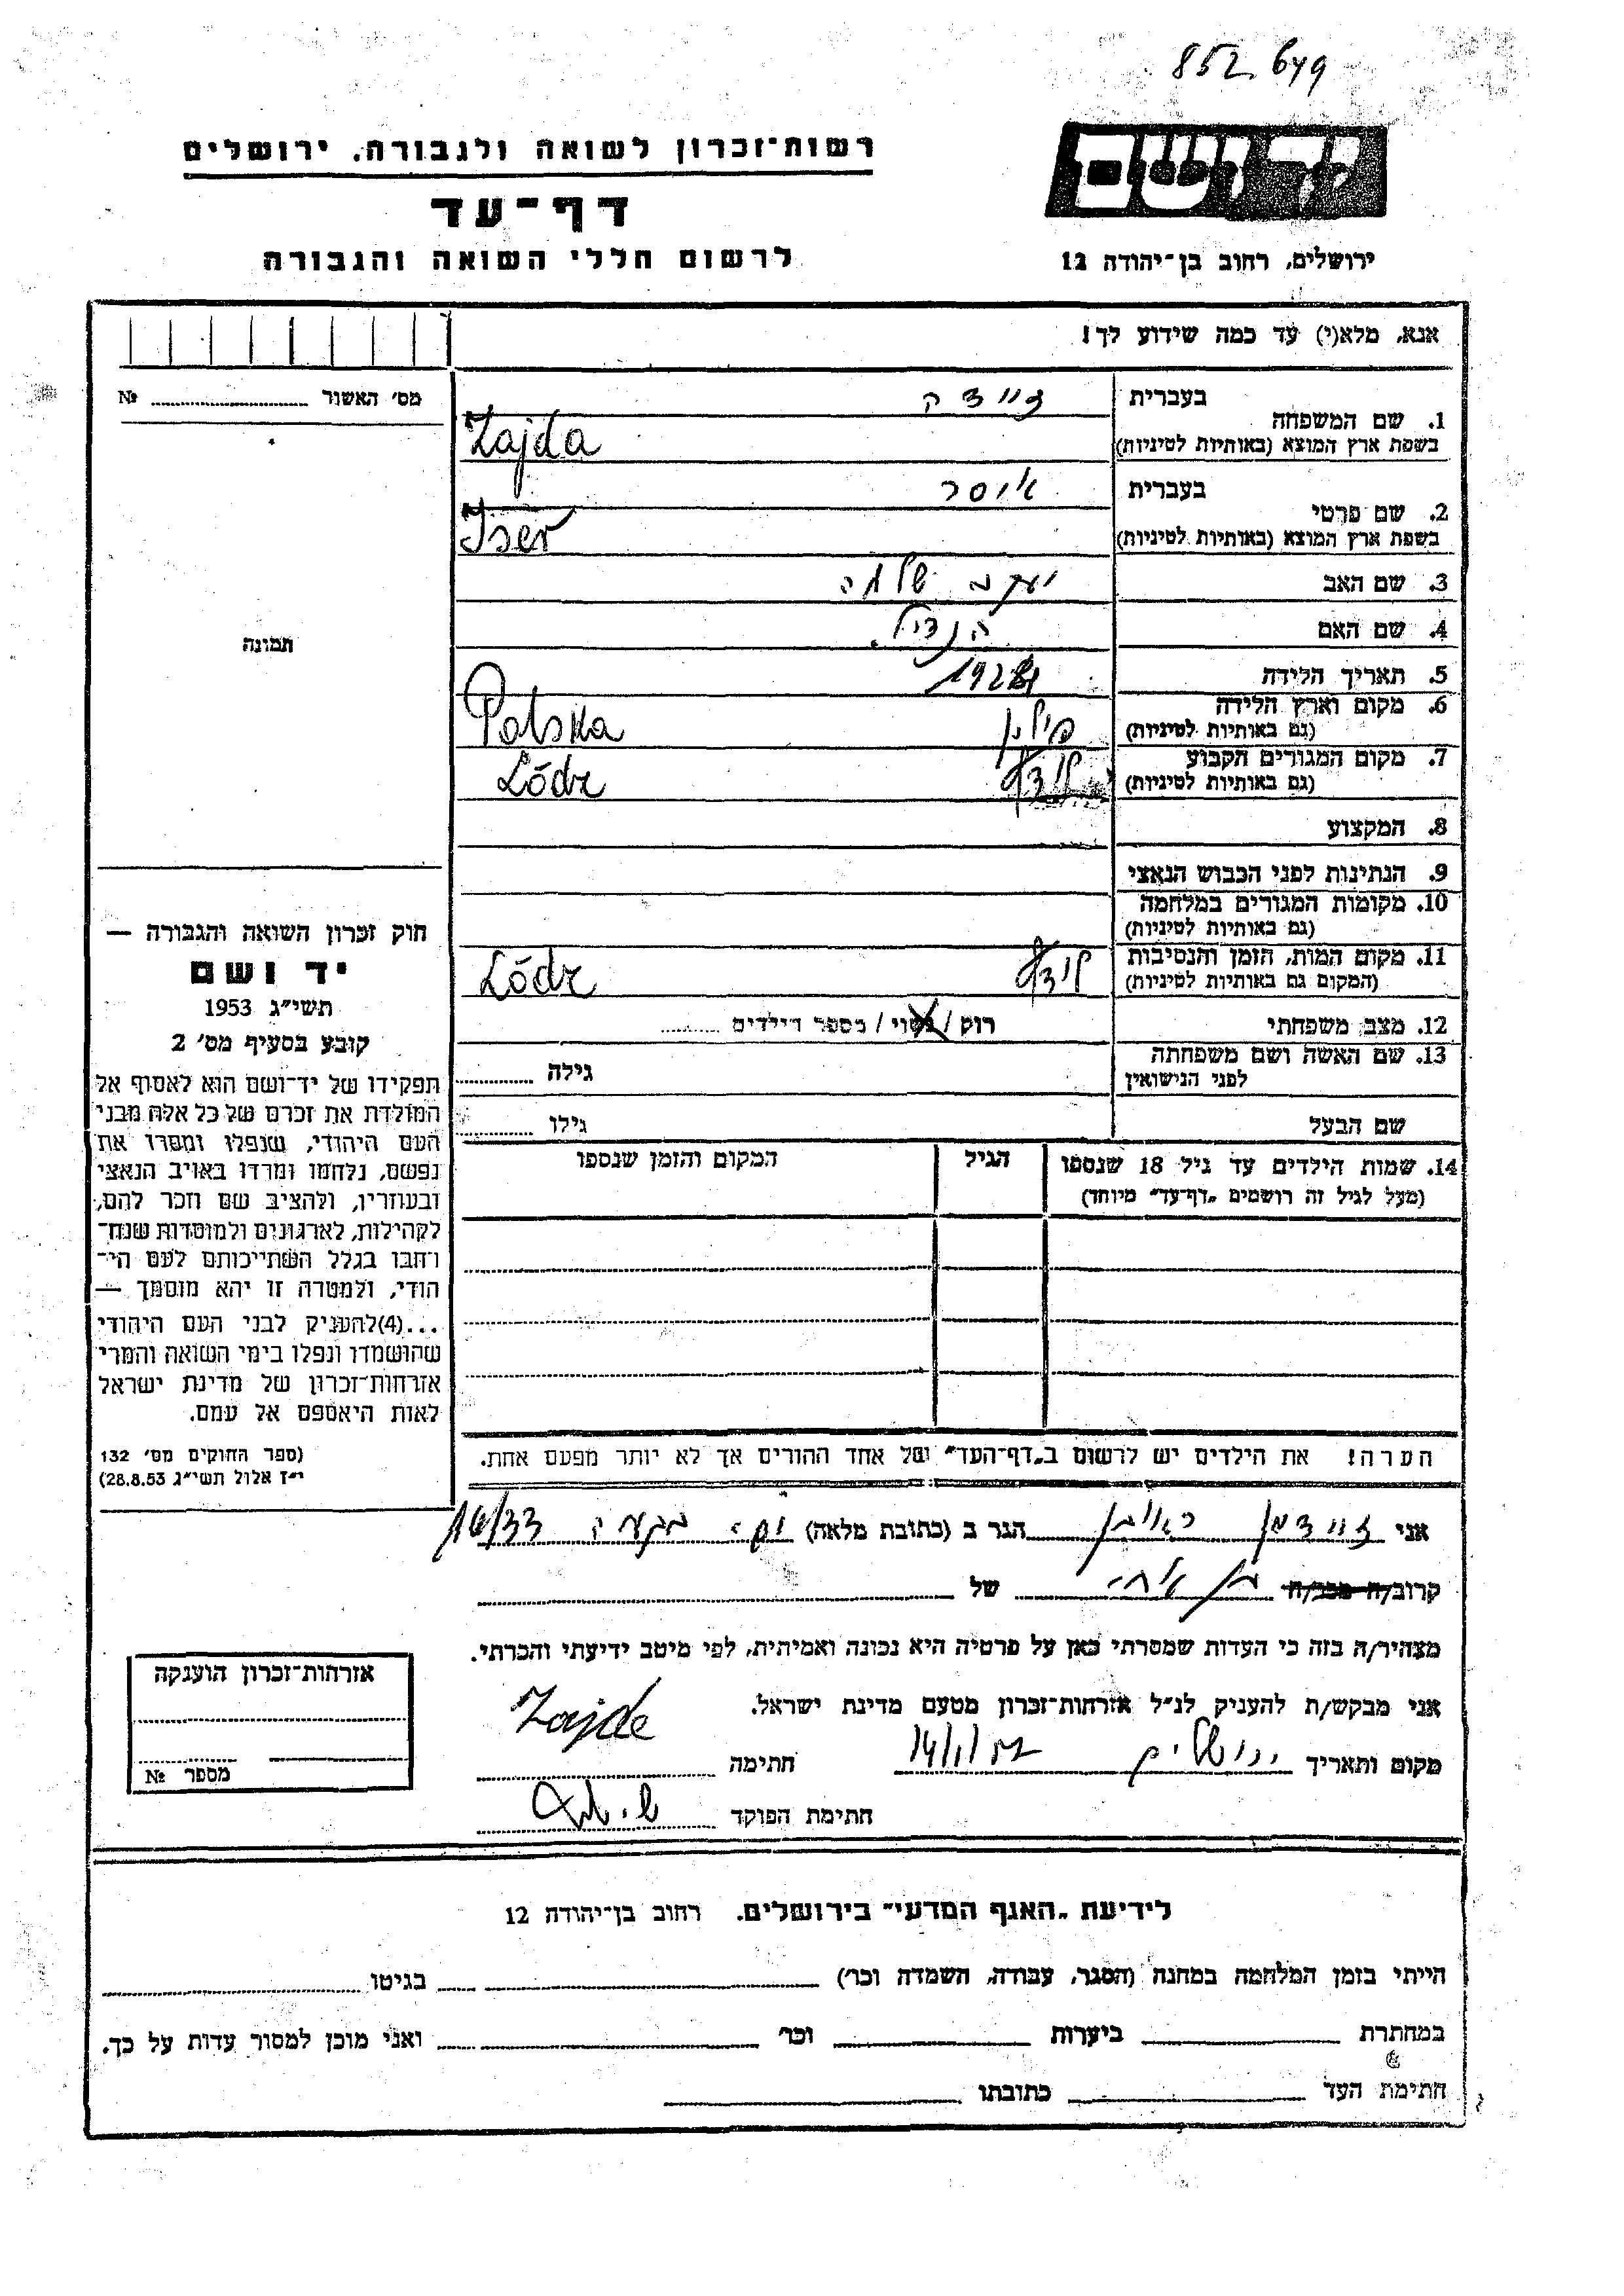 852 649
רשות־זכרון לשואה ולגבורה, ירושלים
דף־עד
לרשום חללי השואה והגבורה
יד ושם
ירושלים, רחוב בן־יהודה 12
אנא, מלא(י) עד כמה שידוע לך!
מס׳ האשור №
בעברית זיידה
1. שם המשפחה
בשפת ארץ המוצא (באותיות לטיניות) Zajda
בעברית איסר
2. שם פרטי
בשפת ארץ המוצא (באותיות לטיניות) Iser
3. שם האב יעקב שלמה
4. שם האם הנדיל
5. תאריך הלידה
6. מקום וארץ הלידה פולין Polska
(גם באותיות לטיניות)
7. מקום המגורים הקבוע לודז׳ Lódz
(גם באותיות לטיניות)
8. המקצוע
9. הנתינות לפני הכבוש הנאצי
10. מקומות המגורים במלחמה
(גם באותיות לטיניות)
11. מקום המות, הזמן והנסיבות לודז׳ Lódz
(המקום גם באותיות לטיניות)
12. מצב משפחתי רוק / נשוי / מספר הילדים
13. שם האשה ושם משפחתה גילה
לפני הנישואין
שם הבעל גילו
14. שמות הילדים עד גיל 18 שנספו הגיל המקום והזמן שנספו
(מעל לגיל זה רושמים „דף־עד״ מיוחד)
הערה! את הילדים יש לרשום ב„דף־העד״ של אחד ההורים אך לא יותר מפעם אחת.
תמונה
חוק זכרון השואה והגבורה —
יד ושם
תשי״ג 1953
קובע בסעיף מס׳ 2
תפקידו של יד־ושם הוא לאסוף אל
המולדת את זכרם של כל אלה מבני
העם היהודי, שנפלו ומסרו את
נפשם, נלחמו ומרדו באויב הנאצי
ובעוזריו, ולהציב שם וזכר להם,
לקהילות, לארגונים ולמוסדות שנח־
רחבו בגלל השתייכותם לעם הי־
הודי, ולמטרה זו יהא מוסמך —
...(4)להעניק לבני העם היהודי
שהושמדו ונפלו בימי השואה והמרי
אזרחות־זכרון של מדינת ישראל
לאות היאספם אל עמם.
(ספר החוקים מס׳ 132
י״ז אלול תשי״ג 28.8.53)
אני זיידמן ראובן הגר ב (כתובת מלאה) 16/33
קרוב/ה מכר/ה בן אחי של
מצהיר/ה בזה כי העדות שמסרתי כאן על פרטיה היא נכונה ואמיתית, לפי מיטב ידיעתי והכרתי.
אני מבקש/ת להעניק לנ״ל אזרחות־זכרון מטעם מדינת ישראל.
מקום ותאריך ירושלים חתימה Zajde
חתימת הפוקד
אזרחות־זכרון הוענקה
מספר №
לידיעת „האגף המדעי״ בירושלים. רחוב בן־יהודה 12
הייתי בזמן המלחמה במחנה (הסגר, עבודה, השמדה וכו׳) בגיטו
במחתרת ביערות וכו׳ ואני מוכן למסור עדות על כך.
חתימת העד כתובתו